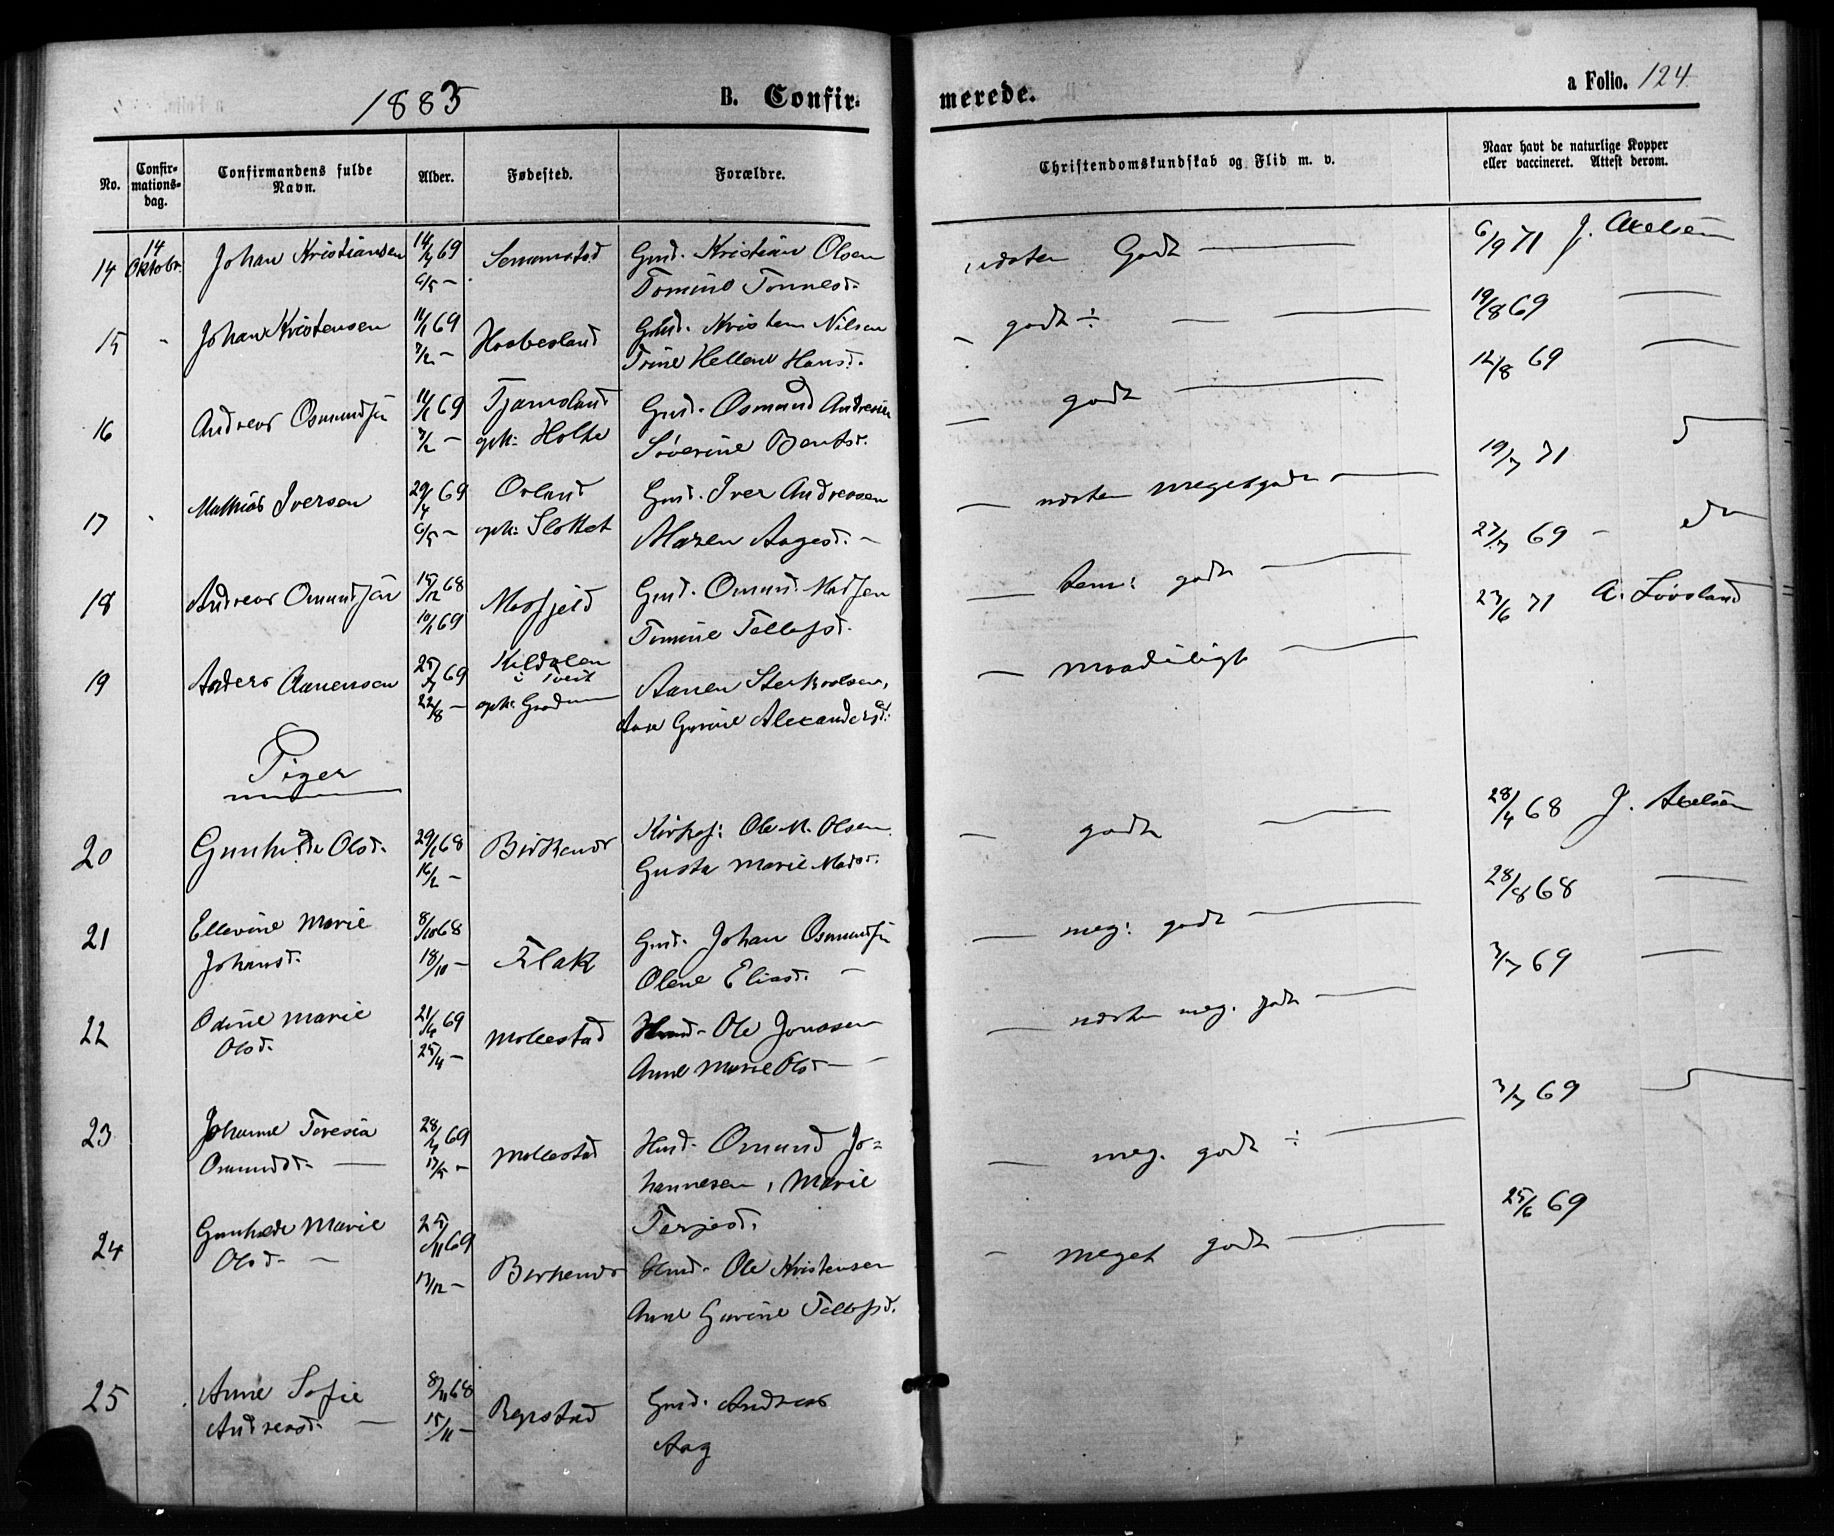 1883 B. Confir-
merede. a Folio. 124
No. Confir-mations-dag. Confirmandens fulde Navn. Alder. Fødested. Forældre. Christendomskundskab og Flid m. v. Naar havt de naturlige Kopper eller vaccineret. Attest derom.
14 14 Oktobr. Johan Kristiansen 69 Gmd. Kristian Olsen næsten Godt 6/9 71
6/5 — Tomine Tønnesd.
15 - Johan Kristensen 11/1 69 Haabesland Gmd. Kristen Nilsen — godt ÷ 19/8 69 —
7/2 — Trine Hellene Hansd.
16 Andreas Osmundsen 11/1 69 Tjamsland Gmd. Osmund Andresen — godt 12/8 69 —
7/2 — opk: Holte Søverine Bentsd.
17 - Mathias Iversen 29/4 69 Gmd. Iver Andreasen — næsten megetgodt 19/7 71
6/5 — opk: Slottet Maren Aagesd. —
18 Andreas Omundsen 15/12 68 Mosfjeld Gmd. Omund Madsen — tem: godt 27/7 69 -
10/1 69 Tomine Tellefsd.
19 Anders Aanensen 25/7 69 Kildalen i Tveit Aanen — maadeligt 23/6 71 A. Løvsland
22/8 — opk: Aase Gurine Alexandersd.
Piger
20 Gunhilde Olsd. 29/1 68 Birkenes Ole M. Olsen — godt 28/4 68
16/2 — Gusta Marie Madsd.
21 Ellevine Marie 8/10 68 Flak Gmd. Johan Osmundsen — meg: godt 28/8 68 —
Johansd. 18/10 — Olene Eliasd. —
22 Odine Marie 21/4 69 Mollestad Hmd. Ole Jonassen — næsten meg. godt 3/7 69 —
Olsd. 25/4 — Anne Marie Olsd —
23 Johanne Teresia 28/4 69 Mollestad Hmd. Omund Jo= — meg. godt ÷ 3/7 69
Omundsd. — 17/5 — hannesen, Marie
Terjesd.
24 Gunhilde Marie 25/11 69 Birkenes Hmd. Ole Kristensen — meget godt 25/6 69
Olsd. — 13/12 — Anne Gurine Tellefsd.
25 Anne Sofie 8/11 68 Gmd. Andreas
Andreasd. — 15/11 — Aag